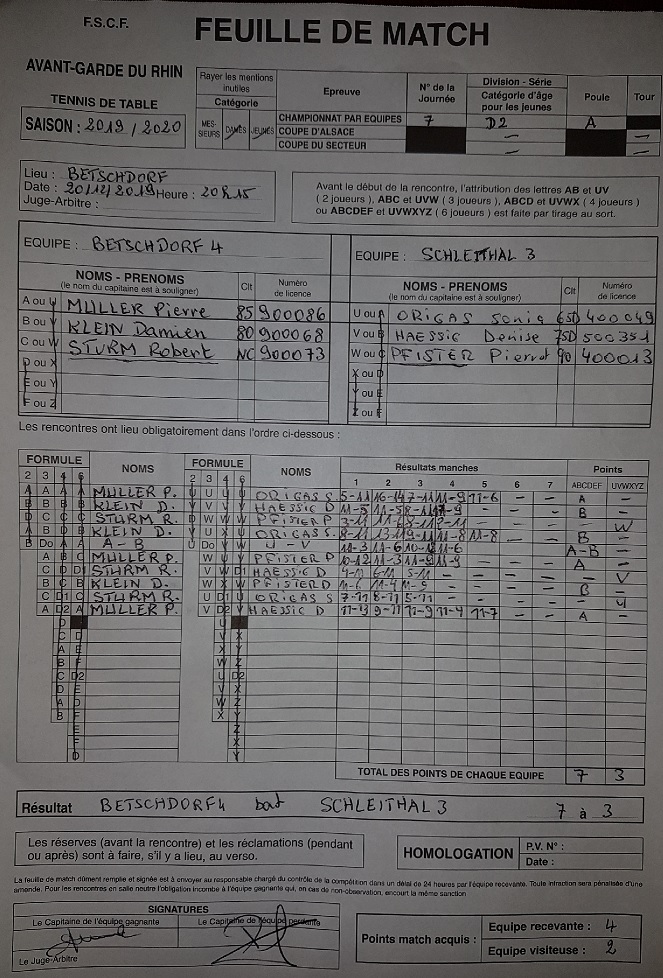 F.S.C.F. FEUILLE DE MATCH
AVANT-GARDE DU RHIN
TENNIS DE TABLE
SAISON : 2019 / 2020
Rayer les mentions inutiles
Catégorie
MES-SIEURS DAMES JEUNES
Epreuve N° de la Journée Division - Série Catégorie d'âge pour les jeunes Poule Tour
CHAMPIONNAT PAR EQUIPES 7 D2 A
COUPE D'ALSACE — —
COUPE DU SECTEUR — —
Lieu : BETSCHDORF
Date : 20/12/2019 Heure : 20h15
Juge-Arbitre :
Avant le début de la rencontre, l'attribution des lettres AB et UV
( 2 joueurs ), ABC et UVW ( 3 joueurs ), ABCD et UVWX ( 4 joueurs )
ou ABCDEF et UVWXYZ ( 6 joueurs ) est faite par tirage au sort.
EQUIPE : BETSCHDORF 4
NOMS - PRENOMS Clt Numéro de licence
(le nom du capitaine est à souligner)
A ou U MULLER Pierre 85 900086
B ou V KLEIN Damien 80 900068
C ou W STURM Robert NC 900073
D ou X
E ou Y
F ou Z
EQUIPE : SCHLEITHAL 3
NOMS - PRENOMS Clt Numéro de licence
(le nom du capitaine est à souligner)
U ou A ORIGAS Sonia 65D 400049
V ou B HAESSIG Denise 75D 500351
W ou C PFISTER Pierrot 90 400013
X ou D
Y ou E
Z ou F
Les rencontres ont lieu obligatoirement dans l'ordre ci-dessous :
FORMULE NOMS FORMULE NOMS Résultats manches Points
2 3 4 6 2 3 4 6 1 2 3 4 5 6 7 ABCDEF UVWXYZ
A A A A MULLER P. U U U U ORIGAS S. 5-11 16-14 7-11 11-9 11-6 — — A —
B B B B KLEIN D. V V V V HAESSIG D 11-5 11-5 8-11 — — B —
C C C STURM R. W W W PFISTER P 3-11 — — — W
A B D B KLEIN D. U X U ORIGAS S. 8-11 11-8 11-8 — — B —
B Do A A - B U Do W U - V 11-3 11-6 11-6 A-B —
A B C MULLER P. W U PFISTER P 10-12 11-3 11-9 — — A —
C D D1 STURM R. V W D1 HAESSIG D 6-11 5-11 — — — — V
B C B KLEIN D. W X PFISTER D 11-6 11-4 11-9 — — — — B —
C D1 C STURM R. U D1 U ORIGAS S 7-11 8-11 5-11 — — — — — U
A D2 A MULLER P. V D2 V HAESSIG D 9-11 11-9 11-4 11-7 — — A —
TOTAL DES POINTS DE CHAQUE EQUIPE 7 3
Résultat BETSCHDORF 4 bat SCHLEITHAL 3 7 à 3
Les réserves (avant la rencontre) et les réclamations (pendant
ou après) sont à faire, s'il y a lieu, au verso.
HOMOLOGATION P.V. N° :
Date :
La feuille de match dûment remplie et signée est à envoyer au responsable chargé du contrôle de la compétition dans un délai de 24 heures par l'équipe recevante. Toute infraction sera pénalisée d'une
amende. Pour les rencontres en salle neutre l'obligation incombe à l'équipe gagnante qui, en cas de non-observation, encourt la même sanction
SIGNATURES
Le Capitaine de l'équipe gagnante Le Capitaine de l'équipe perdante
Le Juge-Arbitre
Points match acquis : Equipe recevante : 4
Equipe visiteuse : 2